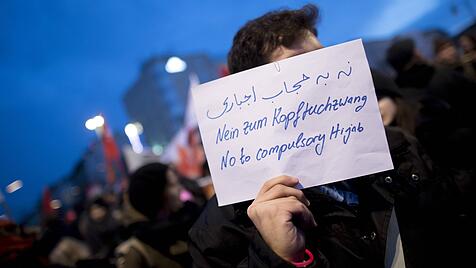 نه به حجاب اجباری
Nein zum Kopftuchzwang
No to compulsory Hijab